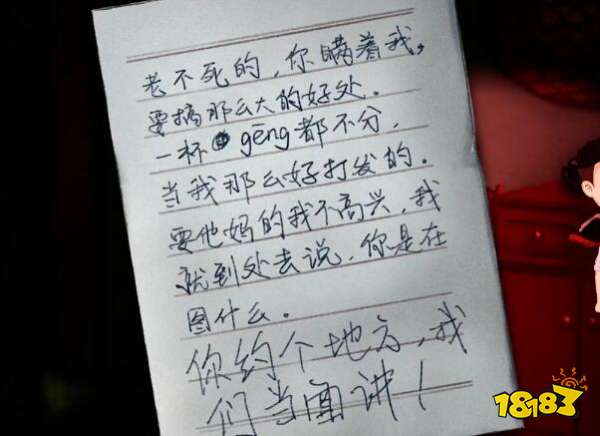 老不死的，你瞒着我，
要搞那么大的好处．
一杯gēng都不分，
当我那么好打发的．
要他妈的我不高兴，我
就到处去说，你是在
图什么。
你约个地方，我
们当面讲！
18183